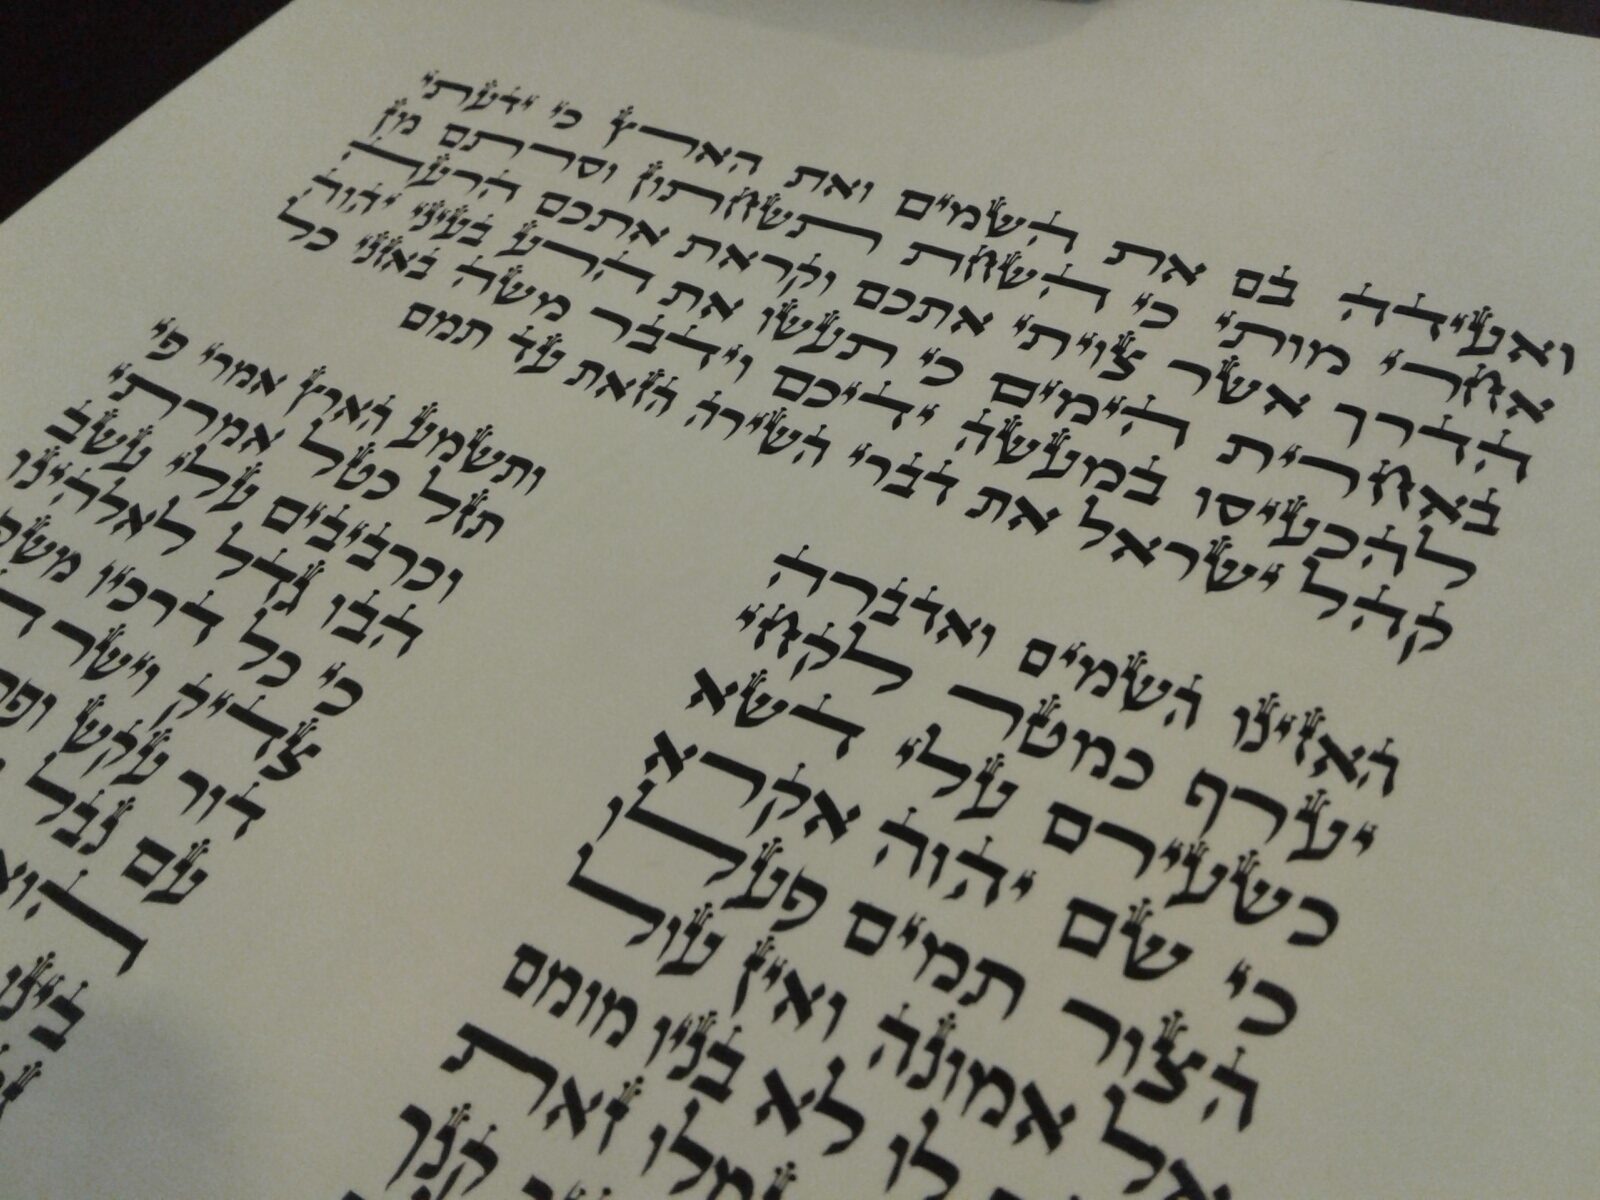 ואעידה בם את השמים ואת הארץ כי ידעתי
אחרי מותי כי השחת תשחתון וסרתם מן
הדרך אשר צויתי אתכם וקראת אתכם הרעה
באחרית הימים כי תעשו את הרע בעיני יהוה
להכעיסו במעשה ידיכם וידבר משה באזני כל
קהל ישראל את דברי השירה הזאת עד תמם
האזינו השמים ואדברה ותשמע הארץ אמרי פי
יערף כמטר לקחי תזל כטל אמרתי
כשעירם עלי דשא וכרביבים עלי עשב
כי שם יהוה אקרא הבו גדל לאלהינו
הצור תמים פעלו כי כל דרכיו
אל אמונה ואין עול צדיק וישר
לו לא בניו מומם דור עקש
זאת עם נבל
קנך הוא
בינו